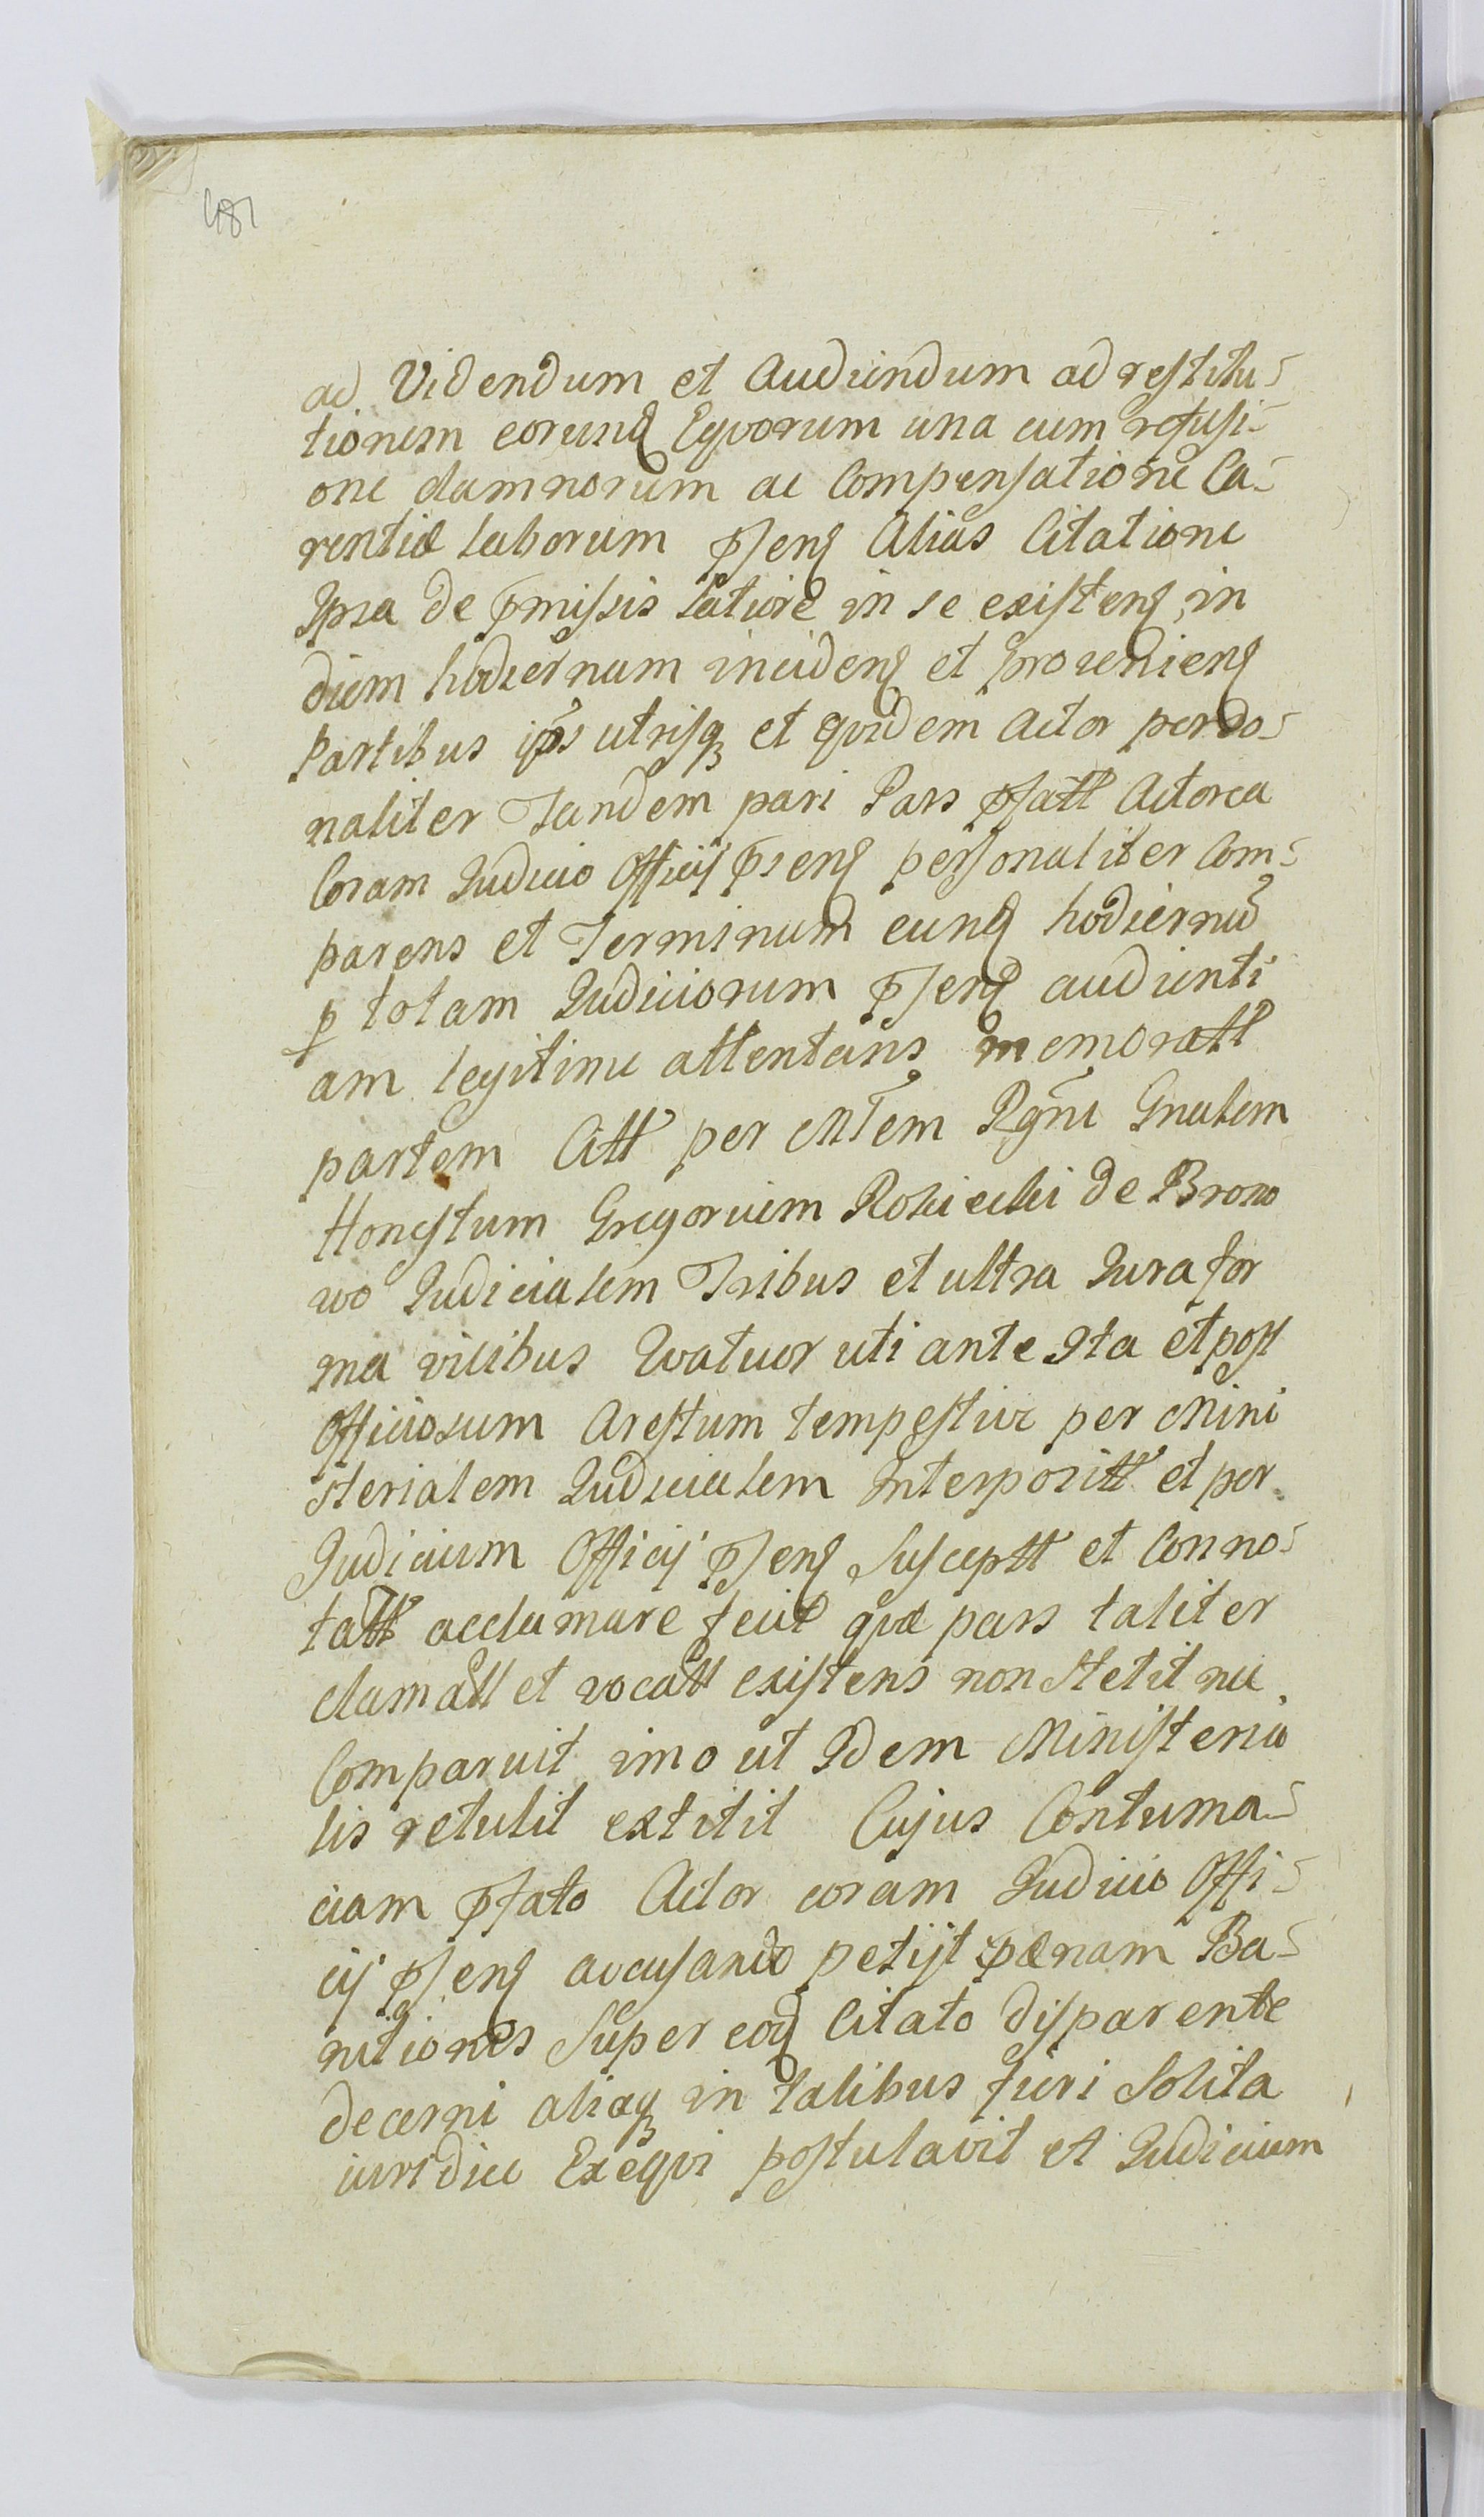 481
ad Videndum et Audiendum ad restitu-
tionem eorund Eqvorum una cum refusi-
one damnorum ac Compensatione Ca-
rentiæ laborum pſen Alias Citatione
Ipsa de pmissis latiore in se existen in
diem hodiernam inciden et provenien
Partibus ipīs utrisq et qvidem Actor perso-
naliter Tandem pari Pars pſatt Actorea
Coram Judicio Officij psen personaliter Com-
parens et Terminum eund hodiernū
p totam Judiciorum pſen audienti
am legitime attentans memoratt
partem Citt per Mīem Rgni Gnalem
Honestum Gregorium Rokicki de Brono
wo Judicialem Tribus et ultra Jura for
ma vicibus Qvatuor uti ante Ita et post
Officiosum Arestum tempestive per Mini
sterialem Judicialem Interpositt et per
Judicium Officij pſen Susceptt et Conno-
tatt acclamare fecit qvæ pars taliter
clamatt et vocatt existens non stetit nec
Comparuit imo ut Idem Ministeria
lis retulit extitit Cujus Contuma-
ciam pſato Actor coram Judicio Offi-
cij pſen accusando petijt pænam Ba-
nitiones Super eod Citato disparente
decerni aliaq in talibus fieri Solita
iuridice Exeqvi postulavit et Judicium